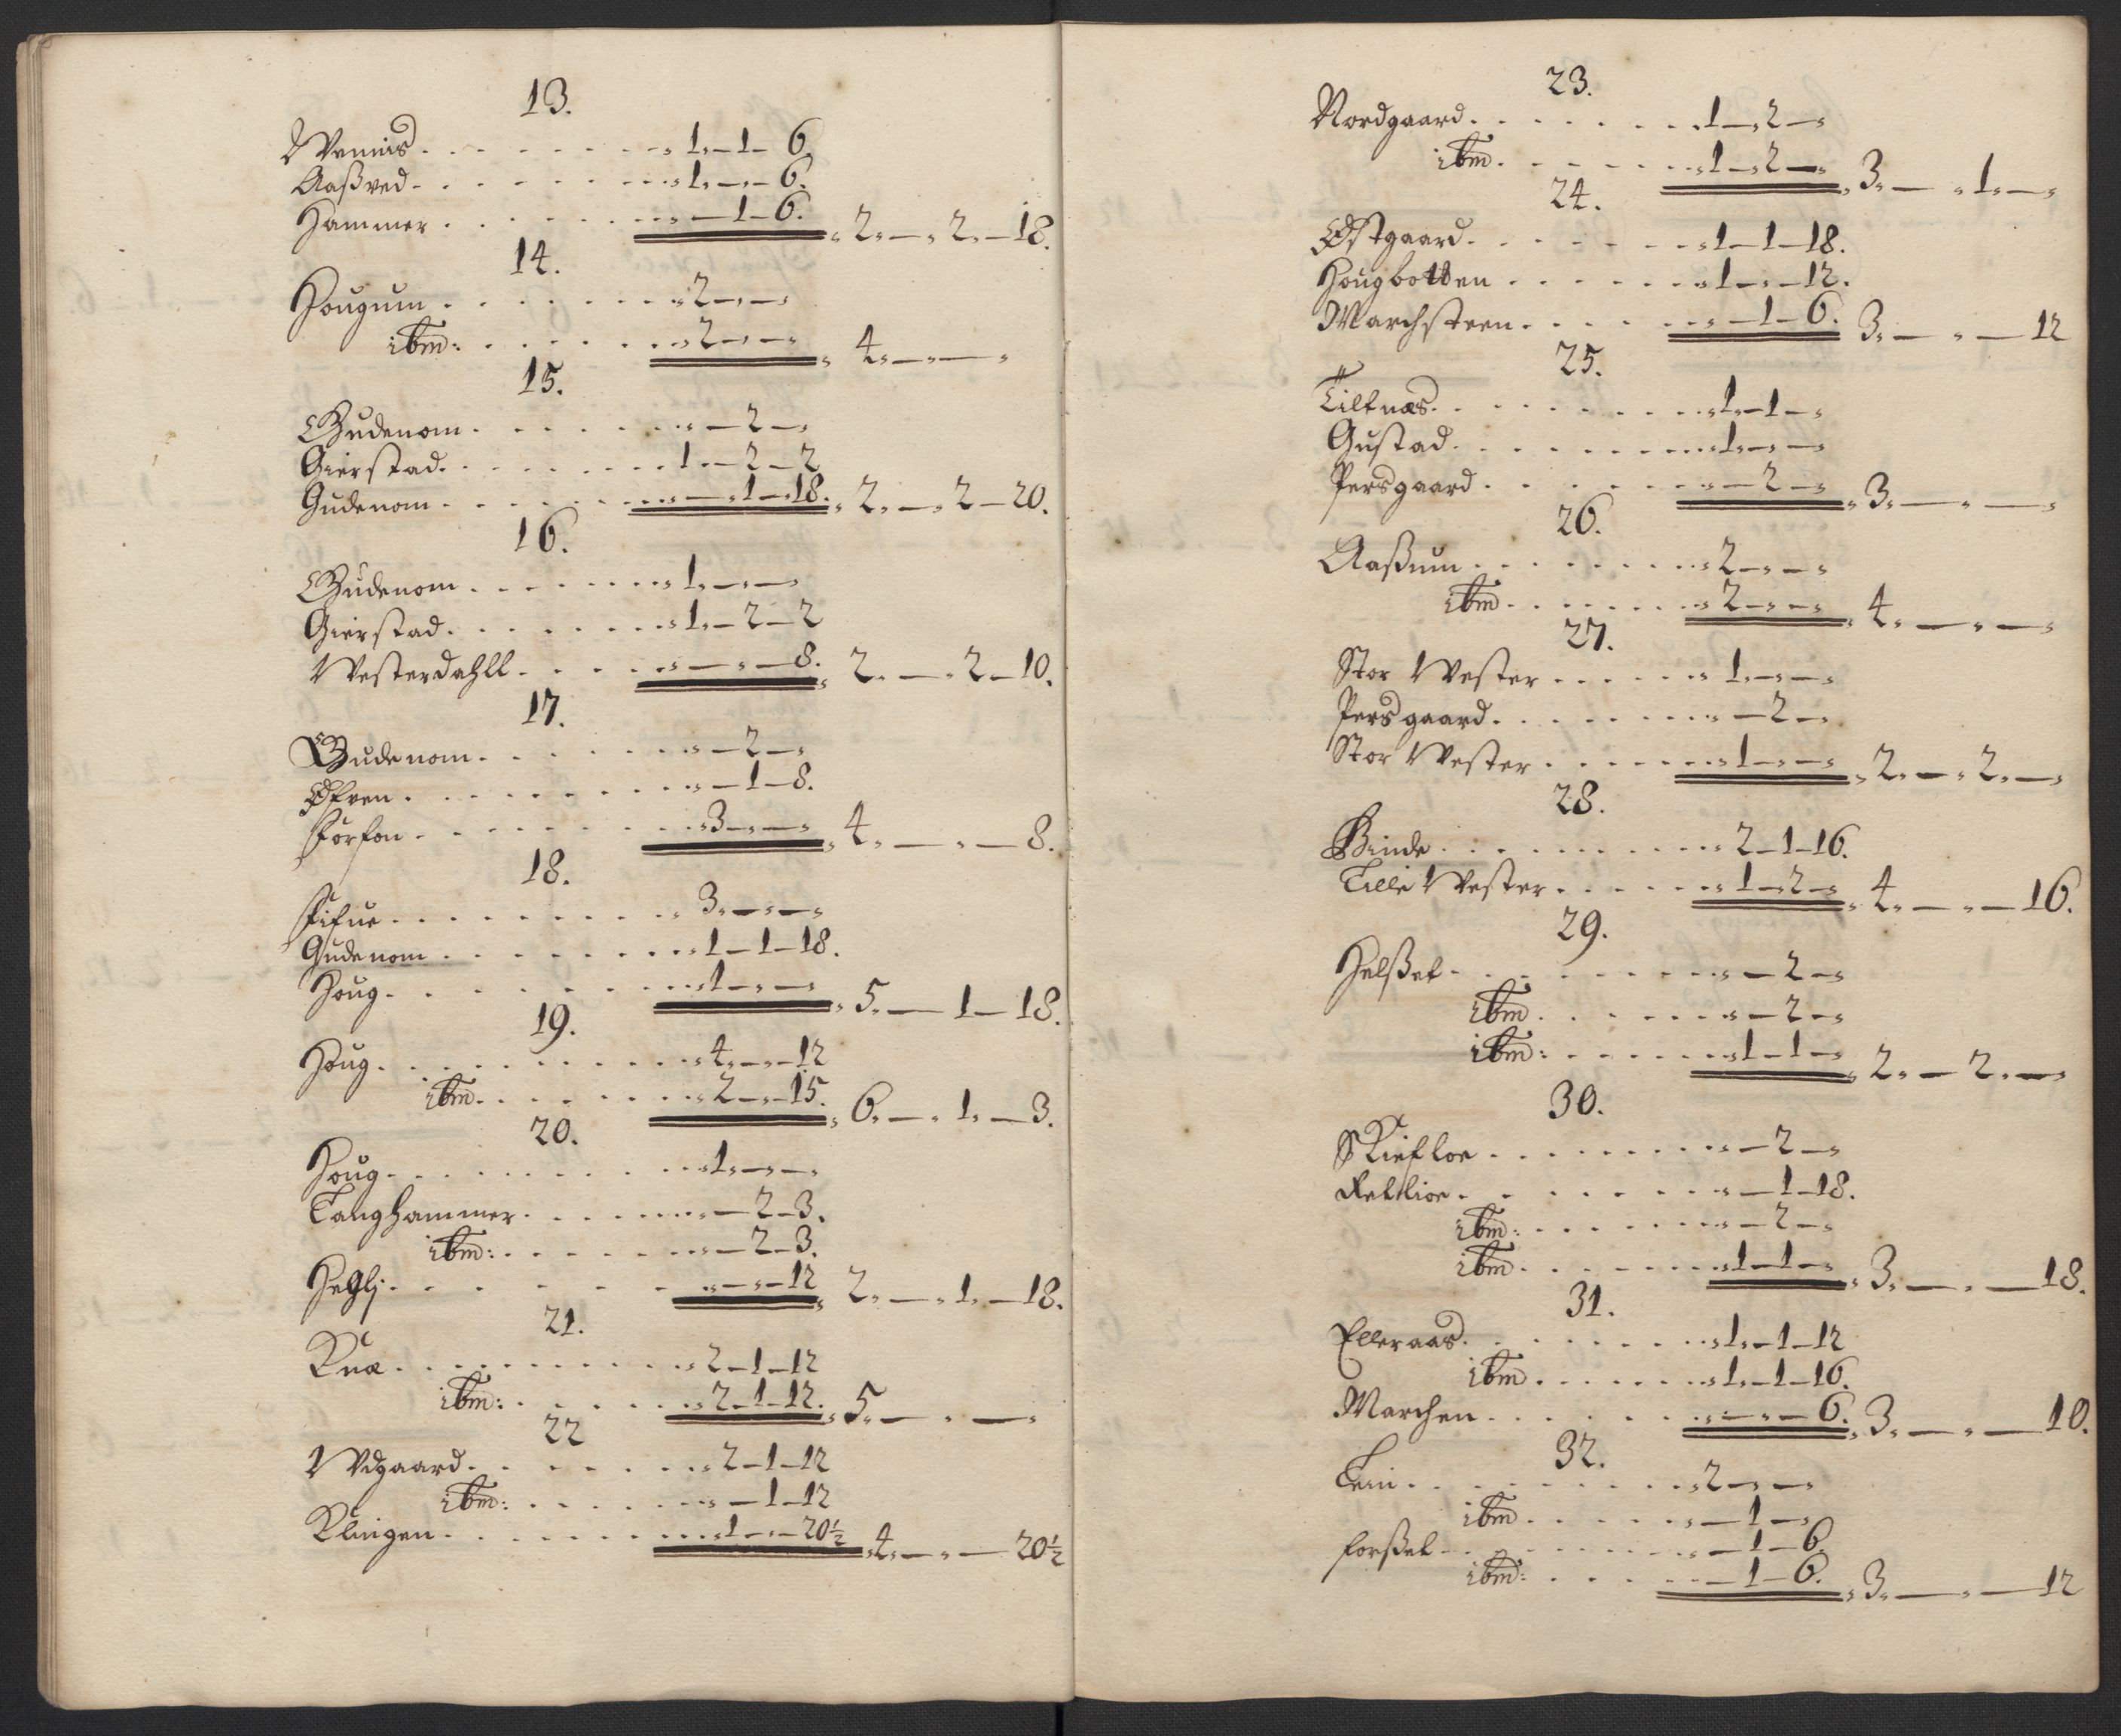 13.
Wennis . . . . . . . . „ 1„ — 1 — 6
Aaßved . . . . . . . . „ 1„ — „ — 6.
Hammer . . . . . . . . „ — 1 — 6. „ 2„ — „ 2„ — 18.
14.
Hougum . . . . . . . . „ 2 — „ — „
ibm: . . . . . . . . „ 2 — „ — „ „ 4„ — „ — „
15.
Gudenom . . . . . . . . „ — 2 — „
Gierstad . . . . . . . . 1 „ — 2 — 2
Gudenom . . . . . . . . „ — „ 1 — 18. „ 2„ — „ 2 — 20.
16.
Gudenom . . . . . . . . „ 1„ — „ — „
Gierstad . . . . . . . . „ 1„ — 2 — 2
Westerdahll . . . . . . „ — „ — 8. „ 2„ — „ 2 — 10.
17.
Gudenom . . . . . . . . „ — 2 — „
Øfren . . . . . . . . „ — 1 — 8.
Forfon . . . . . . . . „ 3 — „ — „ „ 4„ — „ — 8.
18.
Fifue . . . . . . . . „ 3„ — „ — „
Gudenom . . . . . . . . „ 1 — 1 — 18.
Houg . . . . . . . . „ 1 — „ — „ „ 5„ — 1 — 18.
19.
Houg . . . . . . . . „ 4„ — „ — 12
ibm . . . . . . . . „ 2 — „ — 15. „ 6„ — „ 1„ — 3.
20.
Houg . . . . . . . . „ 1„ — „ — „
Langhammer . . . . . . . . „ — 2 — 3.
ibm: . . . . . . . . „ — 2 — 3.
Heglj . . . . . . . . „ — „ — 12 „ 2„ — „ 1„ — 18.
21.
Quæ . . . . . . . . „ 2 — 1 — 12
ibm: . . . . . . . . „ 2 — 1 — 12. „ 5„ — „ — „
22
Wdgaard . . . . . . . . „ 2 — 1 — 12
ibm: . . . . . . . . „ — 1 — 12
Klingen . . . . . . . . „ 1 — „ — 20½ „ 4„ — „ — 20½
23.
Nordgaard . . . . . . . . „ 1 — „ 2 — „
ibm . . . . . . . . „ 1 — „ 2 — „ „ 3„ — „ 1„ — „
24.
Østgaard . . . . . . . . „ 1 — 1 — 18.
Hougbotten . . . . . . . . „ 1 — „ — 12.
Marchsteen . . . . . . . . „ — 1 — 6. 3„ — „ — 12
25.
Tilfnæs . . . . . . . . „ 1„ — 1 — „
Gustad . . . . . . . . „ 1„ — „ — „
Persgaard . . . . . . . . „ — 2 — „ „ 3„ — „ — „
26.
Aaßum . . . . . . . . „ 2 — „ — „
ibm . . . . . . . . „ 2 — „ — „ „ 4„ — „ — „
27.
Stor Wester . . . . . . „ 1„ — „ — „
Persgaard . . . . . . . . „ — 2 — „
Stor Wester . . . . . . „ 1 — „ — „ „ 2„ — „ 2„ — „
28.
Binde . . . . . . . . „ 2 — 1 — 16.
Lille Wester . . . . . . „ 1 — „ 2 — „ „ 4„ — „ — 16.
29.
Helßet . . . . . . . . „ — 2 — „
ibm . . . . . . . . „ — 2 — „
ibm: . . . . . . . . „ 1 — 1 — „ „ 2„ — 2„ — „
30.
Skiefloe . . . . . . . . „ — 2 — „
Refflioe . . . . . . . . „ — 1 — 18.
ibm: . . . . . . . . „ — 2 — „
ibm . . . . . . . . „ 1 — 1 — „ „ 3„ — „ — 18.
31.
Elleraas . . . . . . . . „ 1„ — 1 — 12
ibm . . . . . . . . „ 1„ — 1 — 16.
Marchen . . . . . . . . „ — „ — 6. „ 3„ — „ — 10.
32.
Lein . . . . . . . . „ 2 — „ — „
ibm . . . . . . . . „ — 1 — „
forßet . . . . . . . . „ — 1 — 6.
ibm: . . . . . . . . „ — 1 — 6. „ 3„ — „ — 12